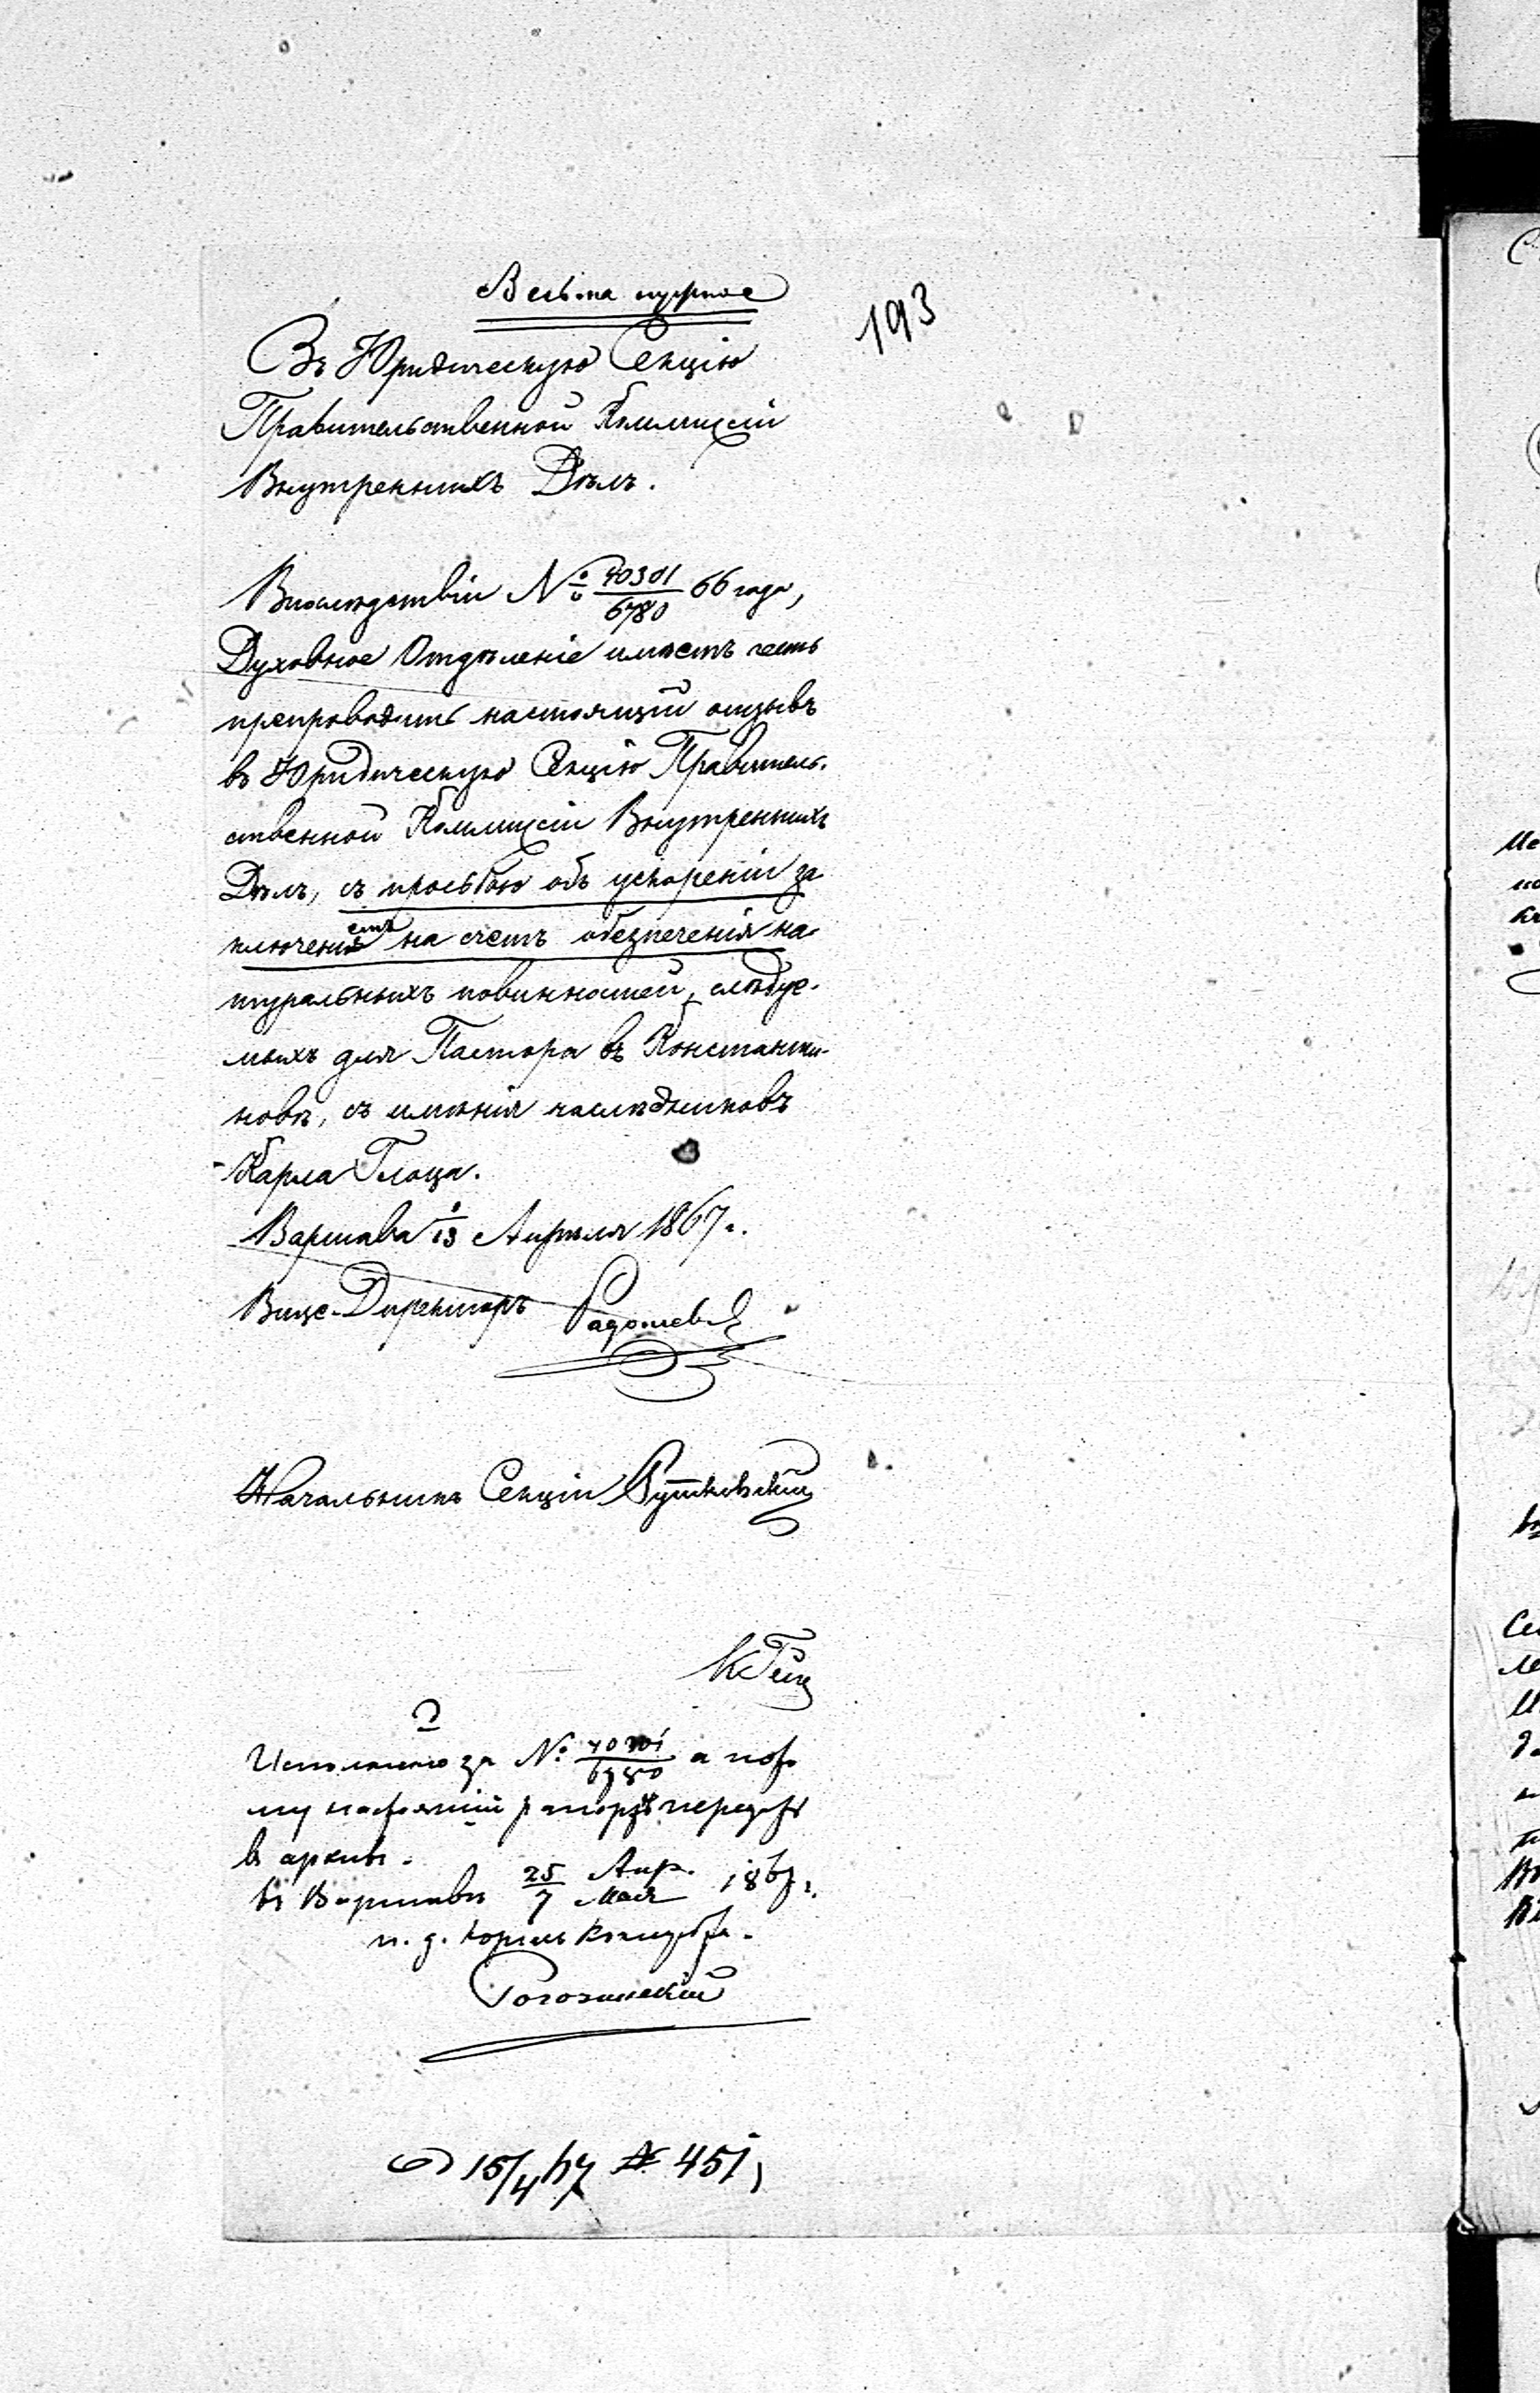 Весьма нужное
193
Въ Юридическую Секцію
Правительственной Коммиссіи
Внутреннихъ Дѣлъ.
Впослѣдствіи № 40301/6780 66 года,
Духовное Отдѣленіе имѣетъ честь
препроводить настоящій отзывъ
въ Юридическую Секцію Правитель-
ственной Коммиссіи Внутреннихъ
Дѣлъ, съ просьбою объ ускореніи за
ключенія на счетъ обезпеченія на-
туральныхъ повинностей, слѣдуе-
мыхъ для Пастора въ Константи-
новѣ, съ имѣнія наслѣдниковъ
Карла Глоца.
Варшава 1/13 Апрѣля 1867 г.
Вице-Директоръ
Начальникъ Секціи Рутковскій
Исполнено за № 40301/6780 а пото
му настоящій рапортъ передать
въ архивъ.
въ Варшавѣ 25/7 Апр./Мая 1867 г.
и. д. Юрисъ Консульта.
Рогозинскій
15/4 67 № 451